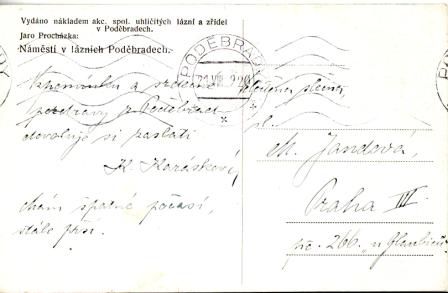 Vydáno nákladem akc. spol. uhličitých lázní a zřídel
v Poděbradech.
Jaro Procházka:
Náměstí v lázních Poděbradech.
PODĚBRADY
Vzpomínku a srdečné
pozdravy z Poděbrad
dovoluje si zaslati
K. Karásková,
mám špatné počasí,
stále prší.
slečna
sl.
M. Jandová,
Praha III
čp. 266.